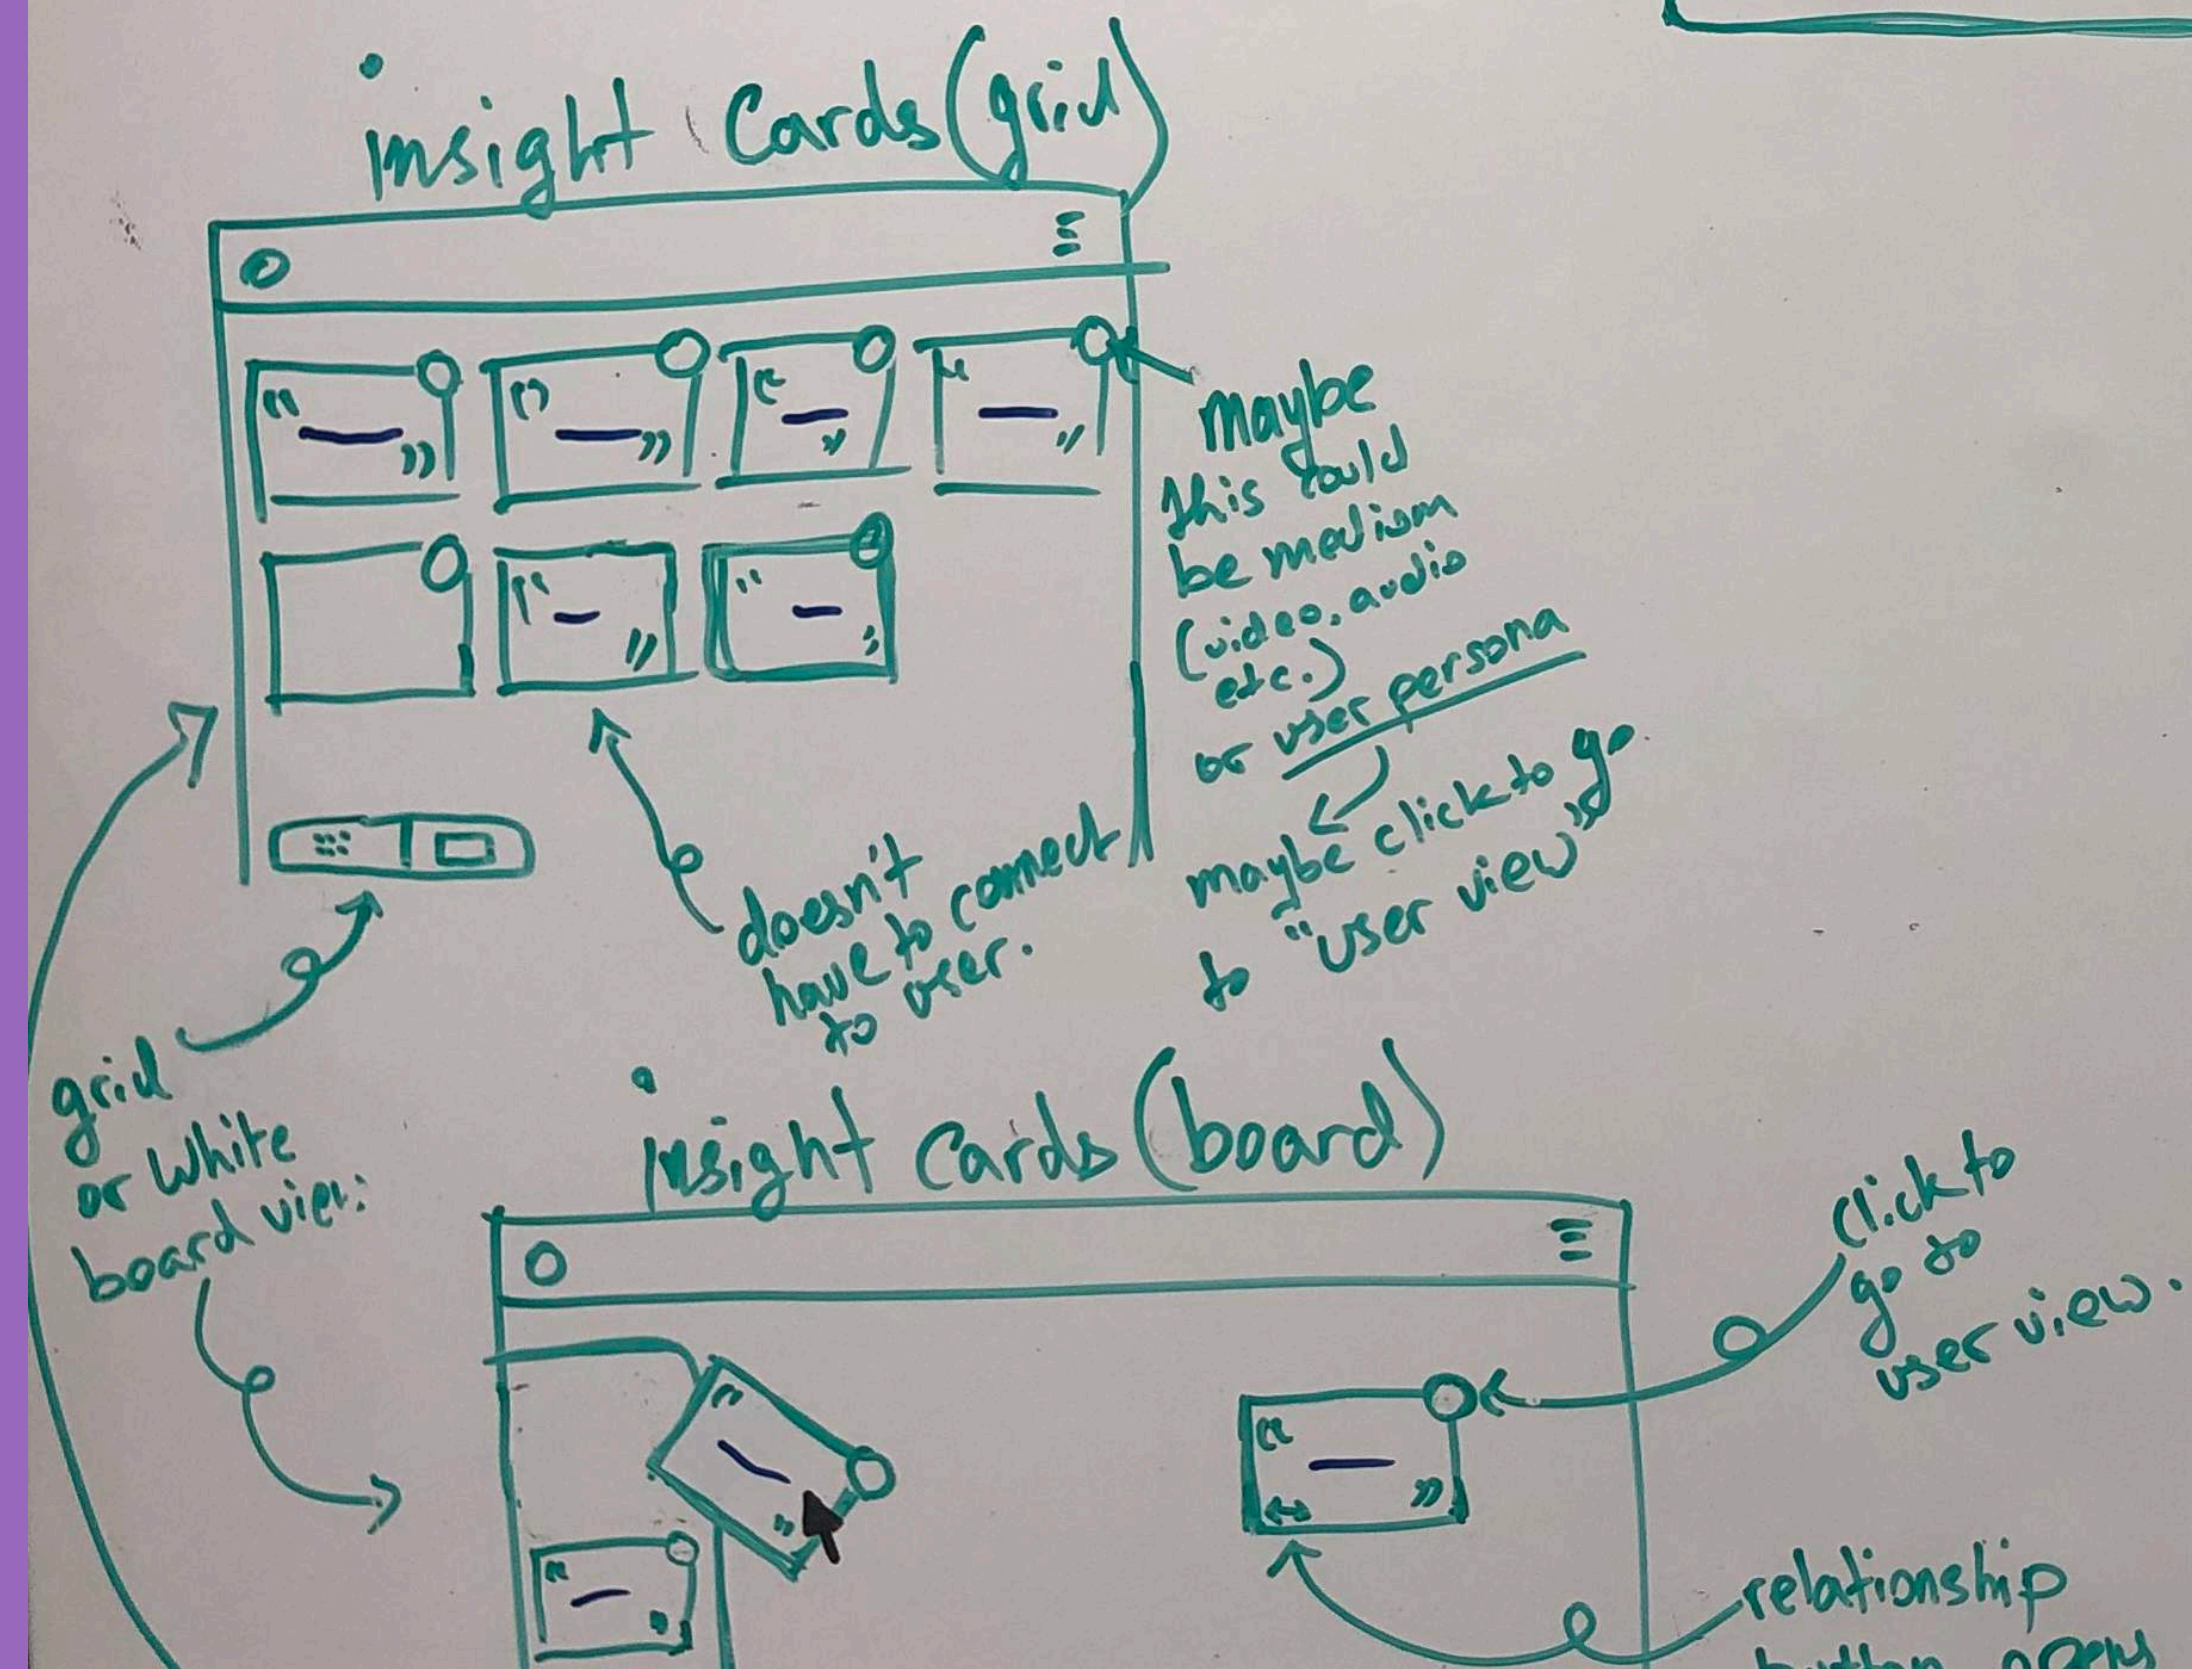 insight Cards (grid)
maybe
this could
be medium
(video, audio
etc.)
or user persona
maybe click to go
to "user view"
doesn't
have to connect
to user.
grid
or white
board view:
insight Cards (board)
click to
go to
user view.
relationship
button opens